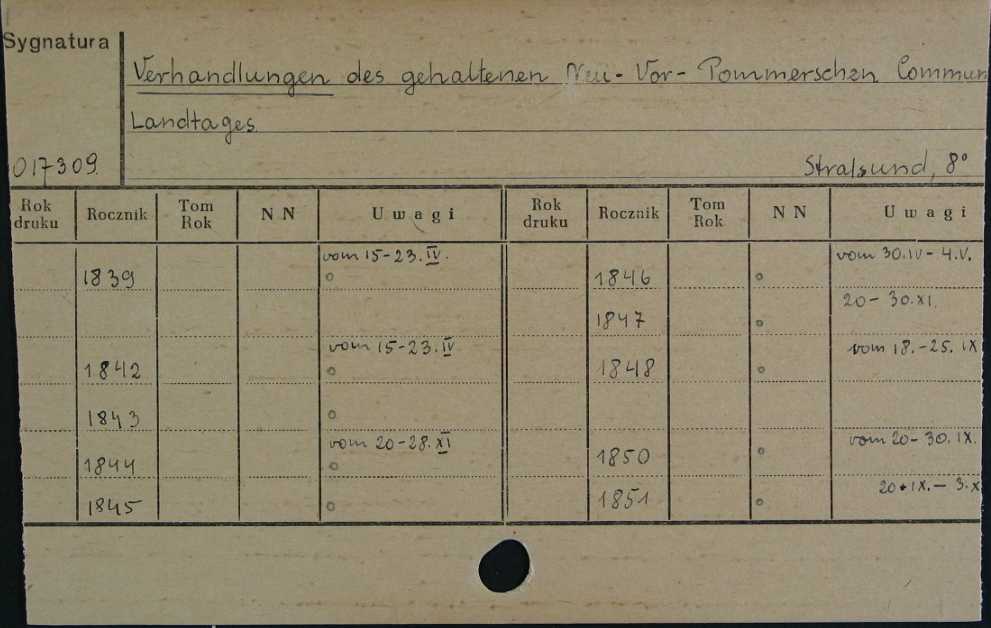 Sygnatura
Verhandlungen des gehaltenen Neu-Vor-Pommerschen Commun
Landtages
017309. Stralsund, 8°
Rok druku Rocznik Tom Rok N N Uwagi Rok druku Rocznik Tom Rok N N Uwagi
vom 15-23. IV. vom 30.IV - 4.V.
1839 ° 1846 °
20 - 30.XI.
1847 °
vom 15-23. IV vom 18.-25. IX
1842 ° 1848 °
1843 °
vom 20-28. XI vom 20-30. IX.
1844 ° 1850 °
20 • IX. - 3.X
1845 ° 1851 °